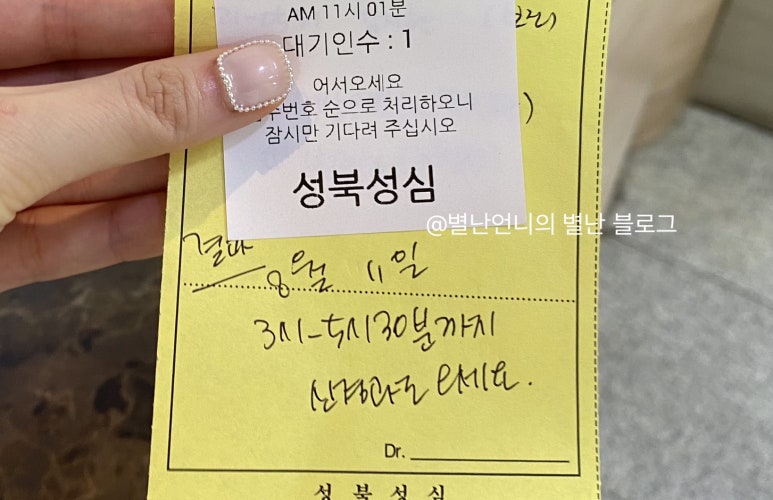 AM 11시 01분
대기인수 : 1
어서오세요
번호 순으로 처리하오니
잠시만 기다려 주십시오
성북성심
@별난언니의 별난 블로그
결과
8월 11일
3시-5시30분까지
신경과로 오세요.
Dr.
성북성심